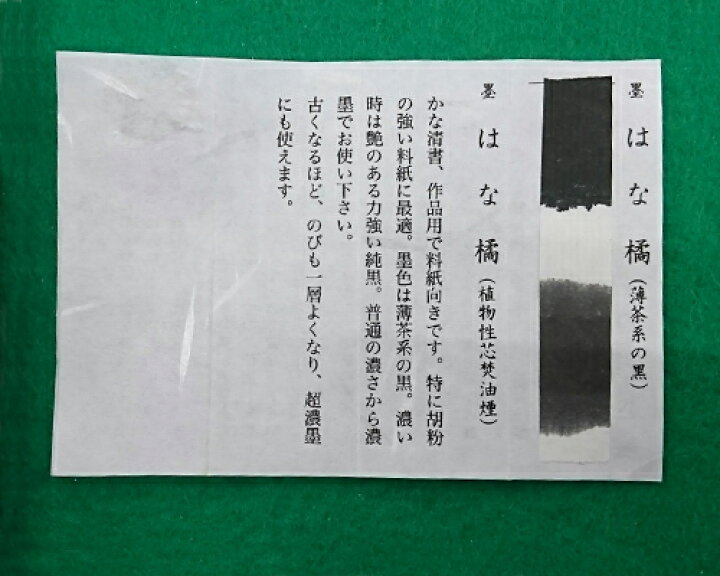 墨 はな橘(薄茶系の黒)
墨 はな橘(植物性芯焚油煙)
かな清書、作品用で料紙向きです。特に胡粉
の強い料紙に最適。墨色は薄茶系の黒。濃い
時は艶のある力強い純黒。普通の濃さから濃
墨でお使い下さい。
古くなるほど、のびも一層よくなり、超濃墨
にも使えます。